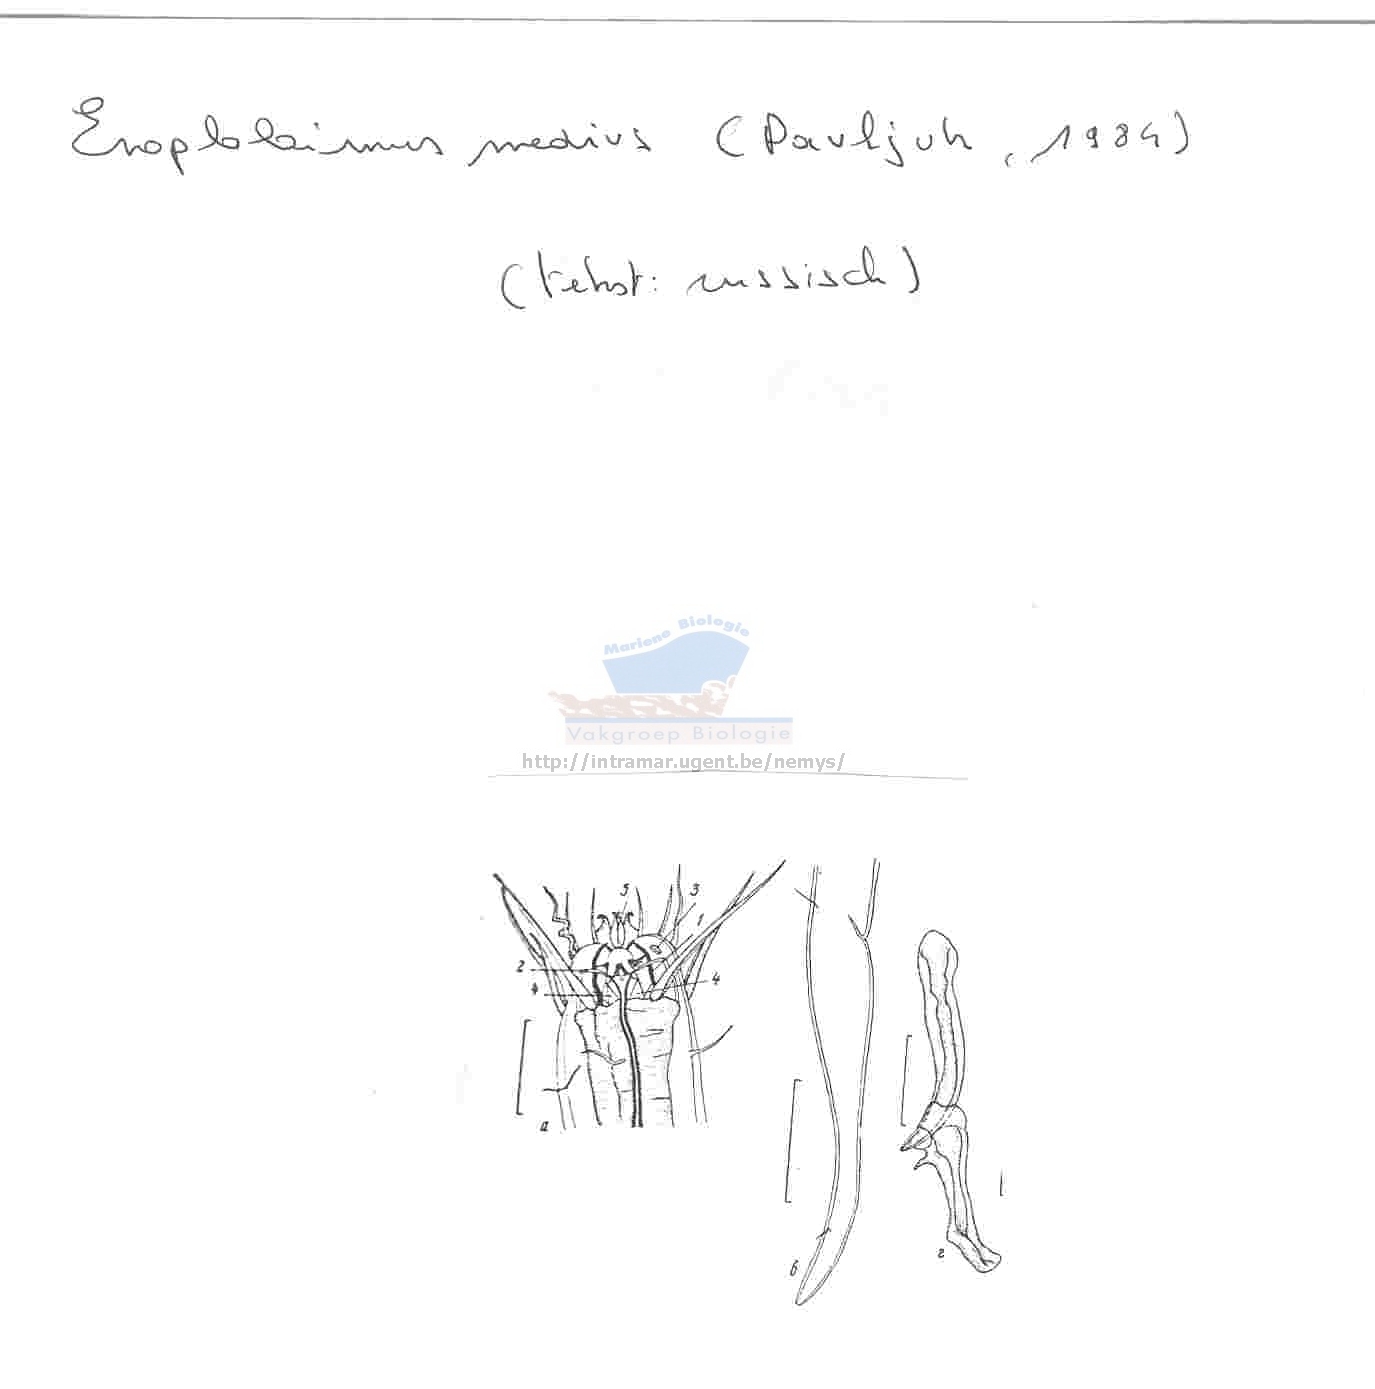 Enoplolaimus medius (Pavljuk, 1984)
(tekst: russisch)
Mariene Biologie
Vakgroep Biologie
http://intramar.ugent.be/nemys/
5 3
1
2
4 4
а
в
г